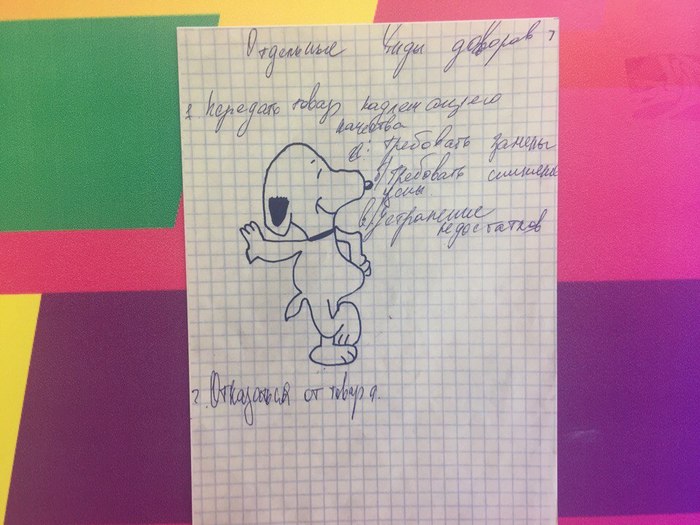 Отдельные виды договоров
1. Передать товар надлежащего
качества
а: требовать замены
б) требовать снижения
цены
в) устранение
недостатков
2. Отказаться от товара.